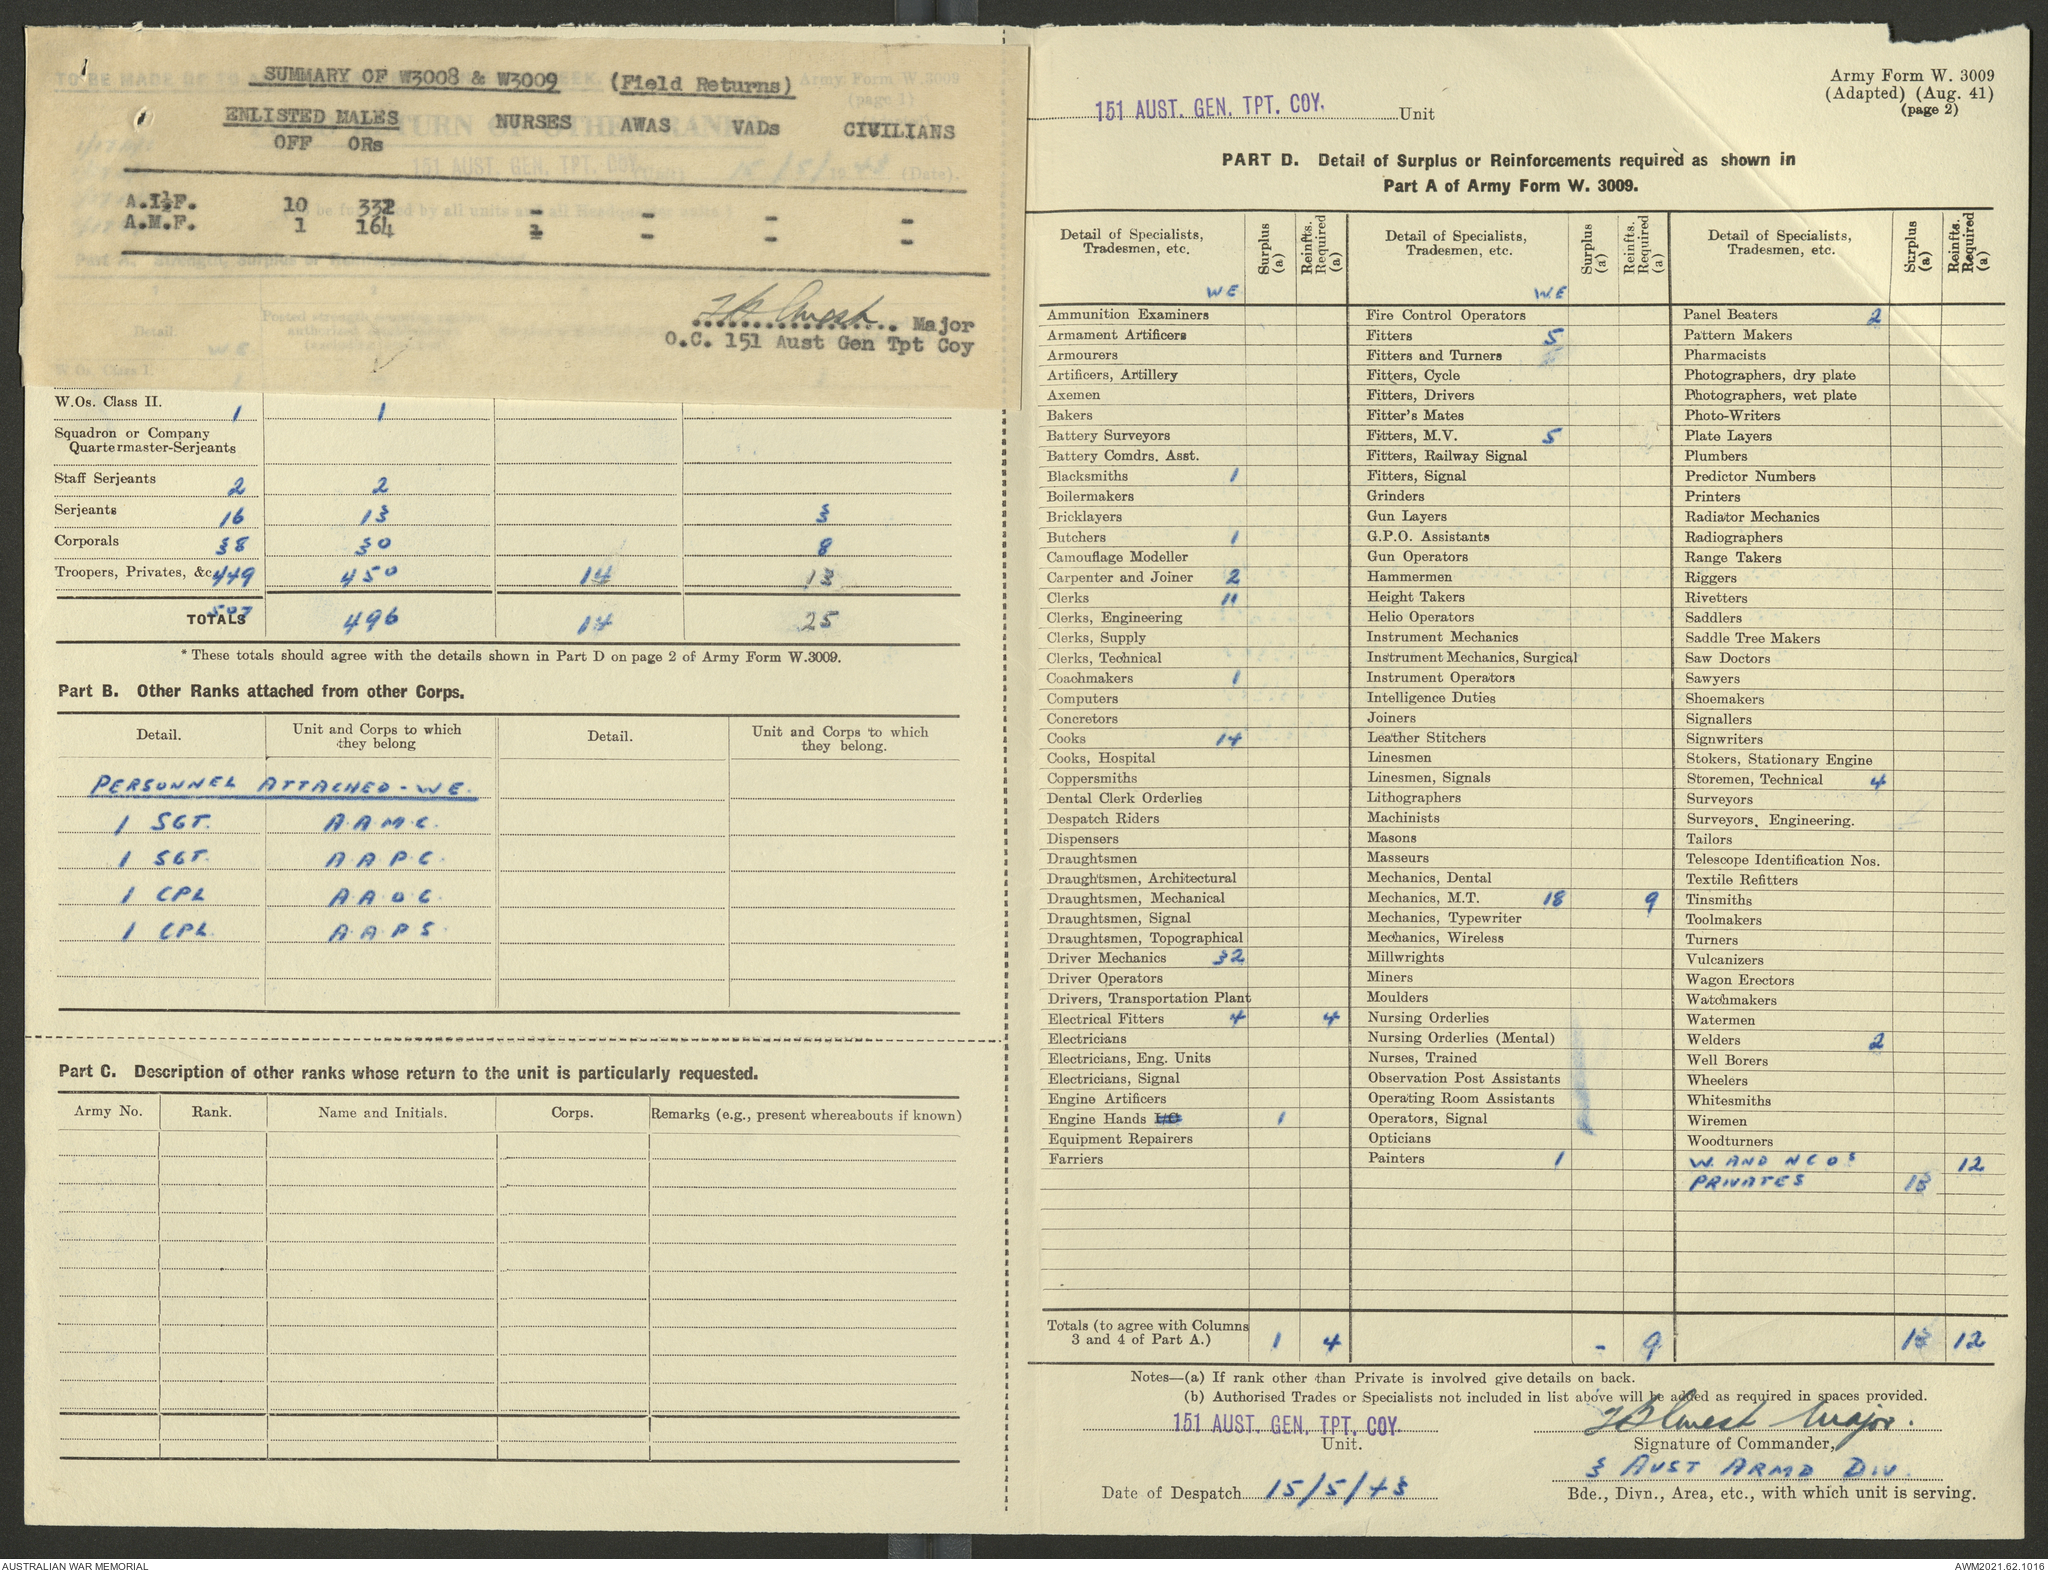 SUMMARY OF W3008 & W3009 (Field Returns)
ENLISTED MALES NURSES AWAS VADs CIVILIANS
OFF ORs
A.I.F. 10 332 - - - -
A.M.F. 1 164 1 - - -
Major
O.C. 151 Aust Gen Tpt Coy
W.Os. Class II. 1 1
Squadron or Company
Quartermaster-Serjeants
Staff Serjeants 2 2
Serjeants 16 13 3
Corporals 38 30 8
Troopers, Privates, &c 449 450 14 13
TOTALS 507 496 14 25
* These totals should agree with the details shown in Part D on page 2 of Army Form W.3009.
Part B. Other Ranks attached from other Corps.
Detail. Unit and Corps to which they belong Detail. Unit and Corps to which they belong.
PERSONNEL ATTACHED - WE.
1 SGT. A.A.M.C.
1 SGT. A.A.P.C.
1 CPL A.A.O.C.
1 CPL. A.A.P.S.
Part C. Description of other ranks whose return to the unit is particularly requested.
Army No. Rank. Name and Initials. Corps. Remarks (e.g., present whereabouts if known)
Army Form W. 3009
(Adapted) (Aug. 41)
(page 2)
151 AUST. GEN. TPT. COY. Unit
PART D. Detail of Surplus or Reinforcements required as shown in
Part A of Army Form W. 3009.
Detail of Specialists, Tradesmen, etc. Surplus (a) Reinfts. Required (a)
WE
Ammunition Examiners
Armament Artificers
Armourers
Artificers, Artillery
Axemen
Bakers
Battery Surveyors
Battery Comdrs. Asst.
Blacksmiths 1
Boilermakers
Bricklayers
Butchers 1
Camouflage Modeller
Carpenter and Joiner 2
Clerks 11
Clerks, Engineering
Clerks, Supply
Clerks, Technical
Coachmakers 1
Computers
Concretors
Cooks 14
Cooks, Hospital
Coppersmiths
Dental Clerk Orderlies
Despatch Riders
Dispensers
Draughtsmen
Draughtsmen, Architectural
Draughtsmen, Mechanical
Draughtsmen, Signal
Draughtsmen, Topographical
Driver Mechanics 32
Driver Operators
Drivers, Transportation Plant
Electrical Fitters 4 4
Electricians
Electricians, Eng. Units
Electricians, Signal
Engine Artificers
Engine Hands 1
Equipment Repairers
Farriers
Detail of Specialists, Tradesmen, etc. Surplus (a) Reinfts. Required (a)
W.E
Fire Control Operators
Fitters 5
Fitters and Turners
Fitters, Cycle
Fitters, Drivers
Fitter's Mates
Fitters, M.V. 5
Fitters, Railway Signal
Fitters, Signal
Grinders
Gun Layers
G.P.O. Assistants
Gun Operators
Hammermen
Height Takers
Helio Operators
Instrument Mechanics
Instrument Mechanics, Surgical
Instrument Operators
Intelligence Duties
Joiners
Leather Stitchers
Linesmen
Linesmen, Signals
Lithographers
Machinists
Masons
Masseurs
Mechanics, Dental
Mechanics, M.T. 18 9
Mechanics, Typewriter
Mechanics, Wireless
Millwrights
Miners
Moulders
Nursing Orderlies
Nursing Orderlies (Mental)
Nurses, Trained
Observation Post Assistants
Operating Room Assistants
Operators, Signal
Opticians
Painters 1
Detail of Specialists, Tradesmen, etc. Surplus (a) Reinfts. Required (a)
Panel Beaters 2
Pattern Makers
Pharmacists
Photographers, dry plate
Photographers, wet plate
Photo-Writers
Plate Layers
Plumbers
Predictor Numbers
Printers
Radiator Mechanics
Radiographers
Range Takers
Riggers
Rivetters
Saddlers
Saddle Tree Makers
Saw Doctors
Sawyers
Shoemakers
Signallers
Signwriters
Stokers, Stationary Engine
Storemen, Technical 4
Surveyors
Surveyors, Engineering.
Tailors
Telescope Identification Nos.
Textile Refitters
Tinsmiths
Toolmakers
Turners
Vulcanizers
Wagon Erectors
Watchmakers
Watermen
Welders 2
Well Borers
Wheelers
Whitesmiths
Wiremen
Woodturners
W. AND NCOs 12
PRIVATES 13
Totals (to agree with Columns 3 and 4 of Part A.) 1 4 - 9 13 12
Notes—(a) If rank other than Private is involved give details on back.
(b) Authorised Trades or Specialists not included in list above will be added as required in spaces provided.
151 AUST. GEN. TPT. COY.
Unit.
Major.
Signature of Commander,
3 AUST ARMD DIV.
Date of Despatch 15/5/43
Bde., Divn., Area, etc., with which unit is serving.
AUSTRALIAN WAR MEMORIAL
AWM2021.62.1016